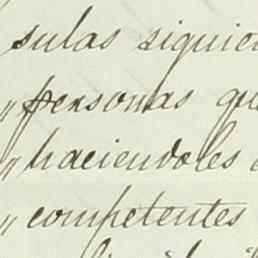 sulas siguie
"personas qu
"haciendoles
"competentes